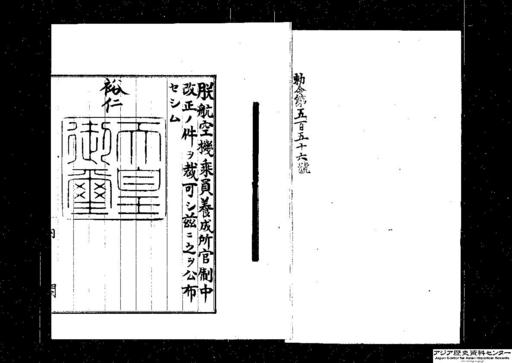 勅令第五百五十六號
朕航空機乗員養成所官制中
改正ノ件ヲ裁可シ茲ニ之ヲ公布
セシム
裕仁
天皇
御璽
内
閣
アジア歴史資料センター
Japan Center for Asian Historical Records